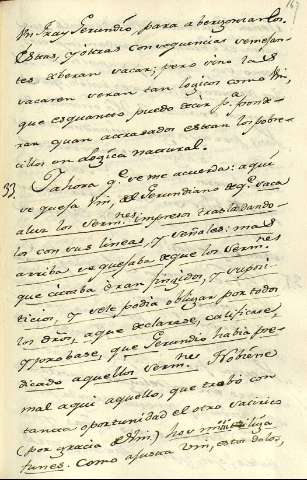 167
Vm. Fray Gerundio, para abergonzarlos.
Estas, y otras consequencias semejan-
tes deberan sacar; pero sino las
sacaren veran tan logicos como Vm,
que es quanto puedo decir pa ponde-
rar quan atrasados estan los pobre-
cillos en Logica natural.
33. Y ahora qe. se me acuerda: aqui
se quexa Vm, del Gerundiano de qe. saca
a luz los Sermnes. impresos trasladando-
los con sus lineas, y señales: mas
arriba se quejaba de que los Sermnes
que citaba eran fingidos, y suposi-
ticios, y se le podia obligar por todos
los dros, a que declarase, calificase,
y probase, que Gerundio habia pre-
dicado aquellos Sermnes. No viene
mal aqui aquello, que trobó con
tanta oportunidad el otro satirico
(por gracia de Vm)
tunes. Como ajusta Vm, estos datos,